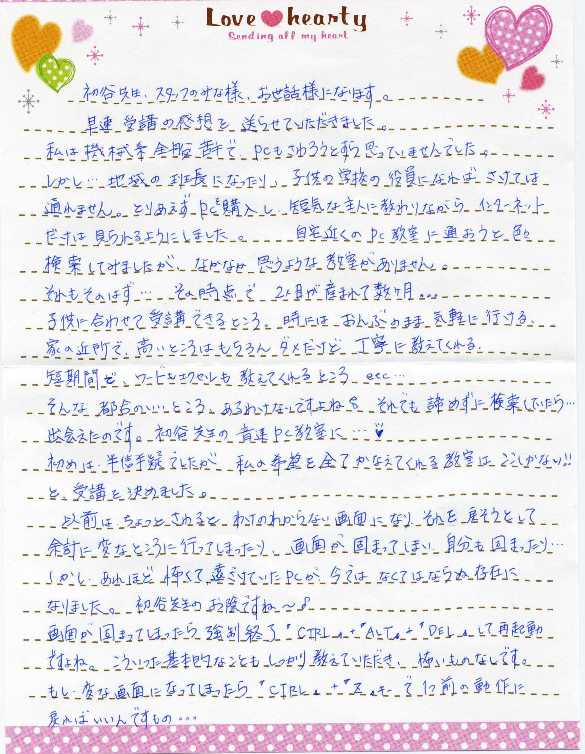 Love hearty
Sending all my heart
初谷先生、スタッフのみな様、お世話様になります。
早速 受講の感想を 送らせていただきました。
私は機械系全般苦手で、PCもさわろうとすら思っていませんでした。
しかし… 地域の班長になったり、子供の学校の役員になれば さけては
通れません。とりあえずPCを購入し、短気な主人に教わりながら インターネット
だけは見られるようにしました。 自宅近くのPC教室に通おうと色々
検索してみましたが、なかなか思うような教室がありません。
それもそのはず… その時点で 2人目が産まれて数ヶ月。。。
子供に合わせて受講できるところ。時には おんぶのまま 気軽に行ける、
家の近所で、高いところはもちろんダメだけど 丁寧に教えてくれる、
短期間で、ワードもエクセルも教えてくれるところ etc…
そんな 都合のいいところ、あるわけないですよね それでも諦めずに検索していたら…
出会えたのです。初谷先生の音速PC教室に…
初めは、半信半疑でしたが、私の希望を全てかなえてくれる教室は ここしかない!!
と、受講を決めました。
以前は ちょっとさわると、わけのわからない画面になり、それを戻そうとして
余計に変なところに行ってしまったり、画面が固まってしまい、自分も固まったり…
しかし、あれほど 怖くて遠ざけていたPCが、今では なくてはならぬ存在に
なりました。初谷先生のお陰ですね〜♪
画面が固まってしまったら 強制終了 "CTRL"+"ALT"+"DEL"して再起動
ですよね。こういった基本的なことも しっかり教えていただき、怖いものなしです。
もし 変な画面になってしまったら "CTRL"+"Z"キーで 1つ前の動作に
戻ればいいんですもの…